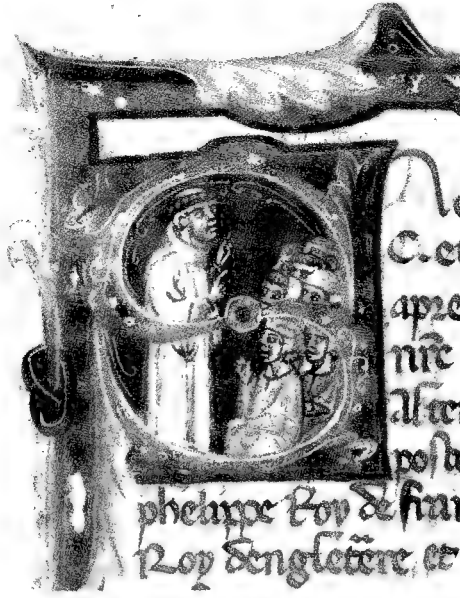 C. et
apre
nr̄e
al ter
posta
phelippe Roy de fran
Roy dengleterre, et